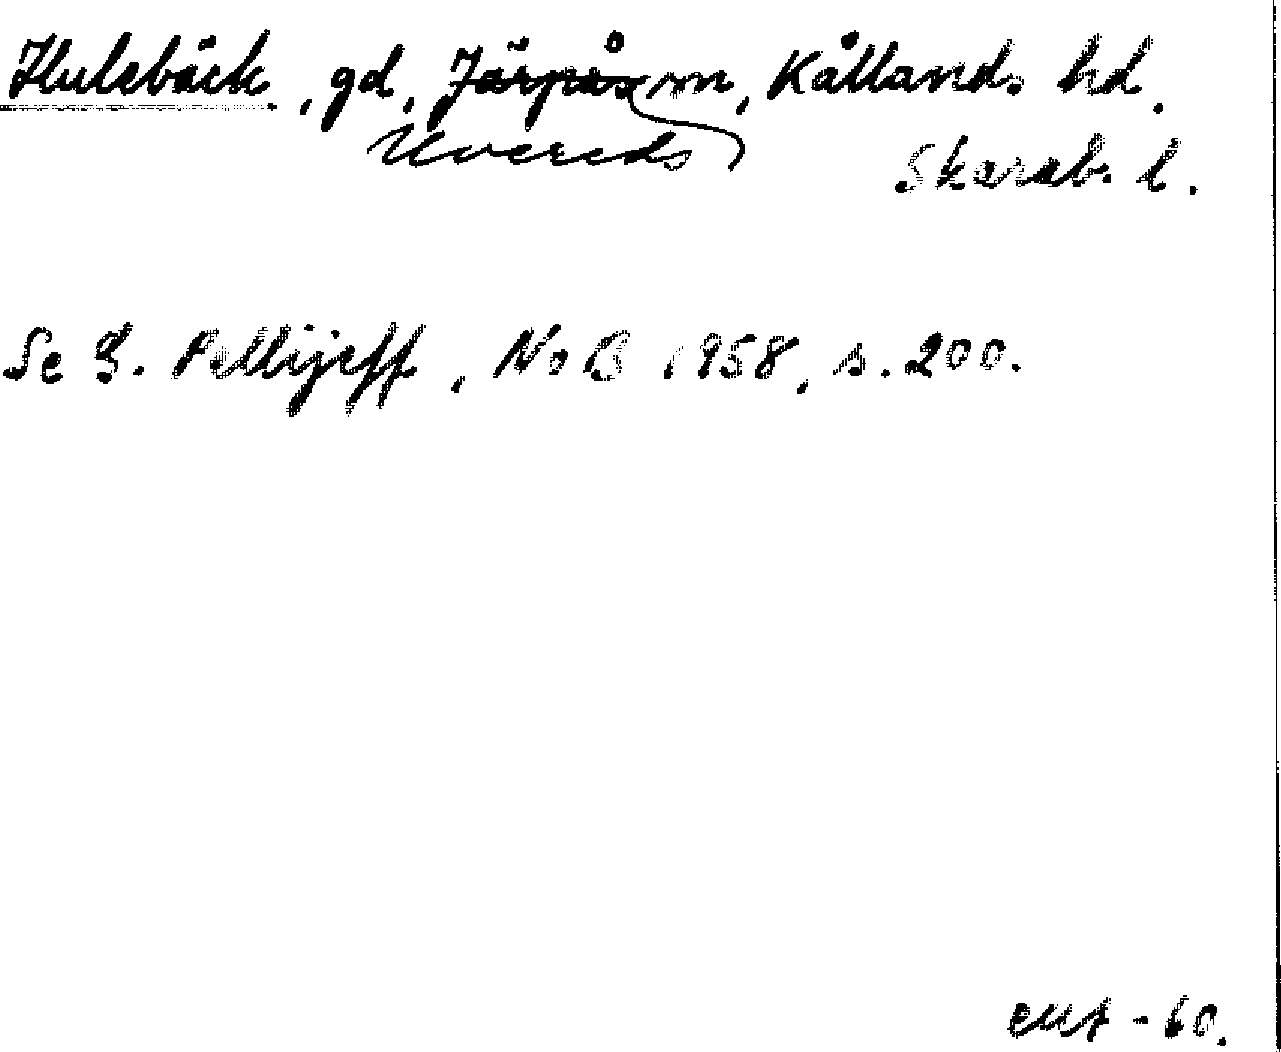 Hulebäck, gd, Järpås sn, Kållands hd.
Uvereds
Skarab. l.
Se G. Pellijeff, NoB 1958, s. 200.
- 60.